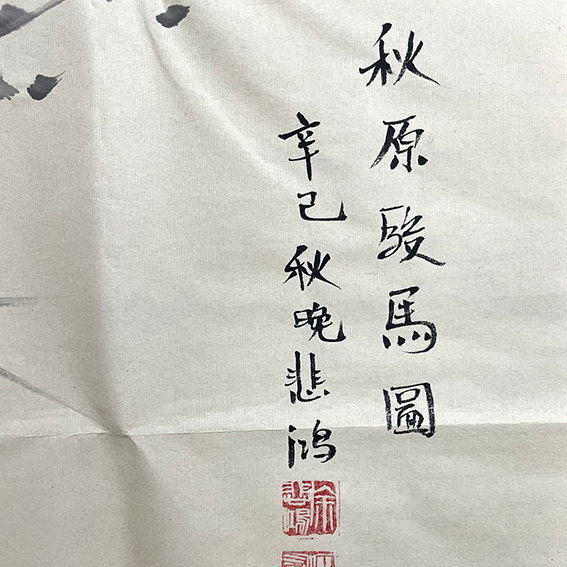 秋原駿馬圖
辛己秋晚悲鴻
徐悲鴻